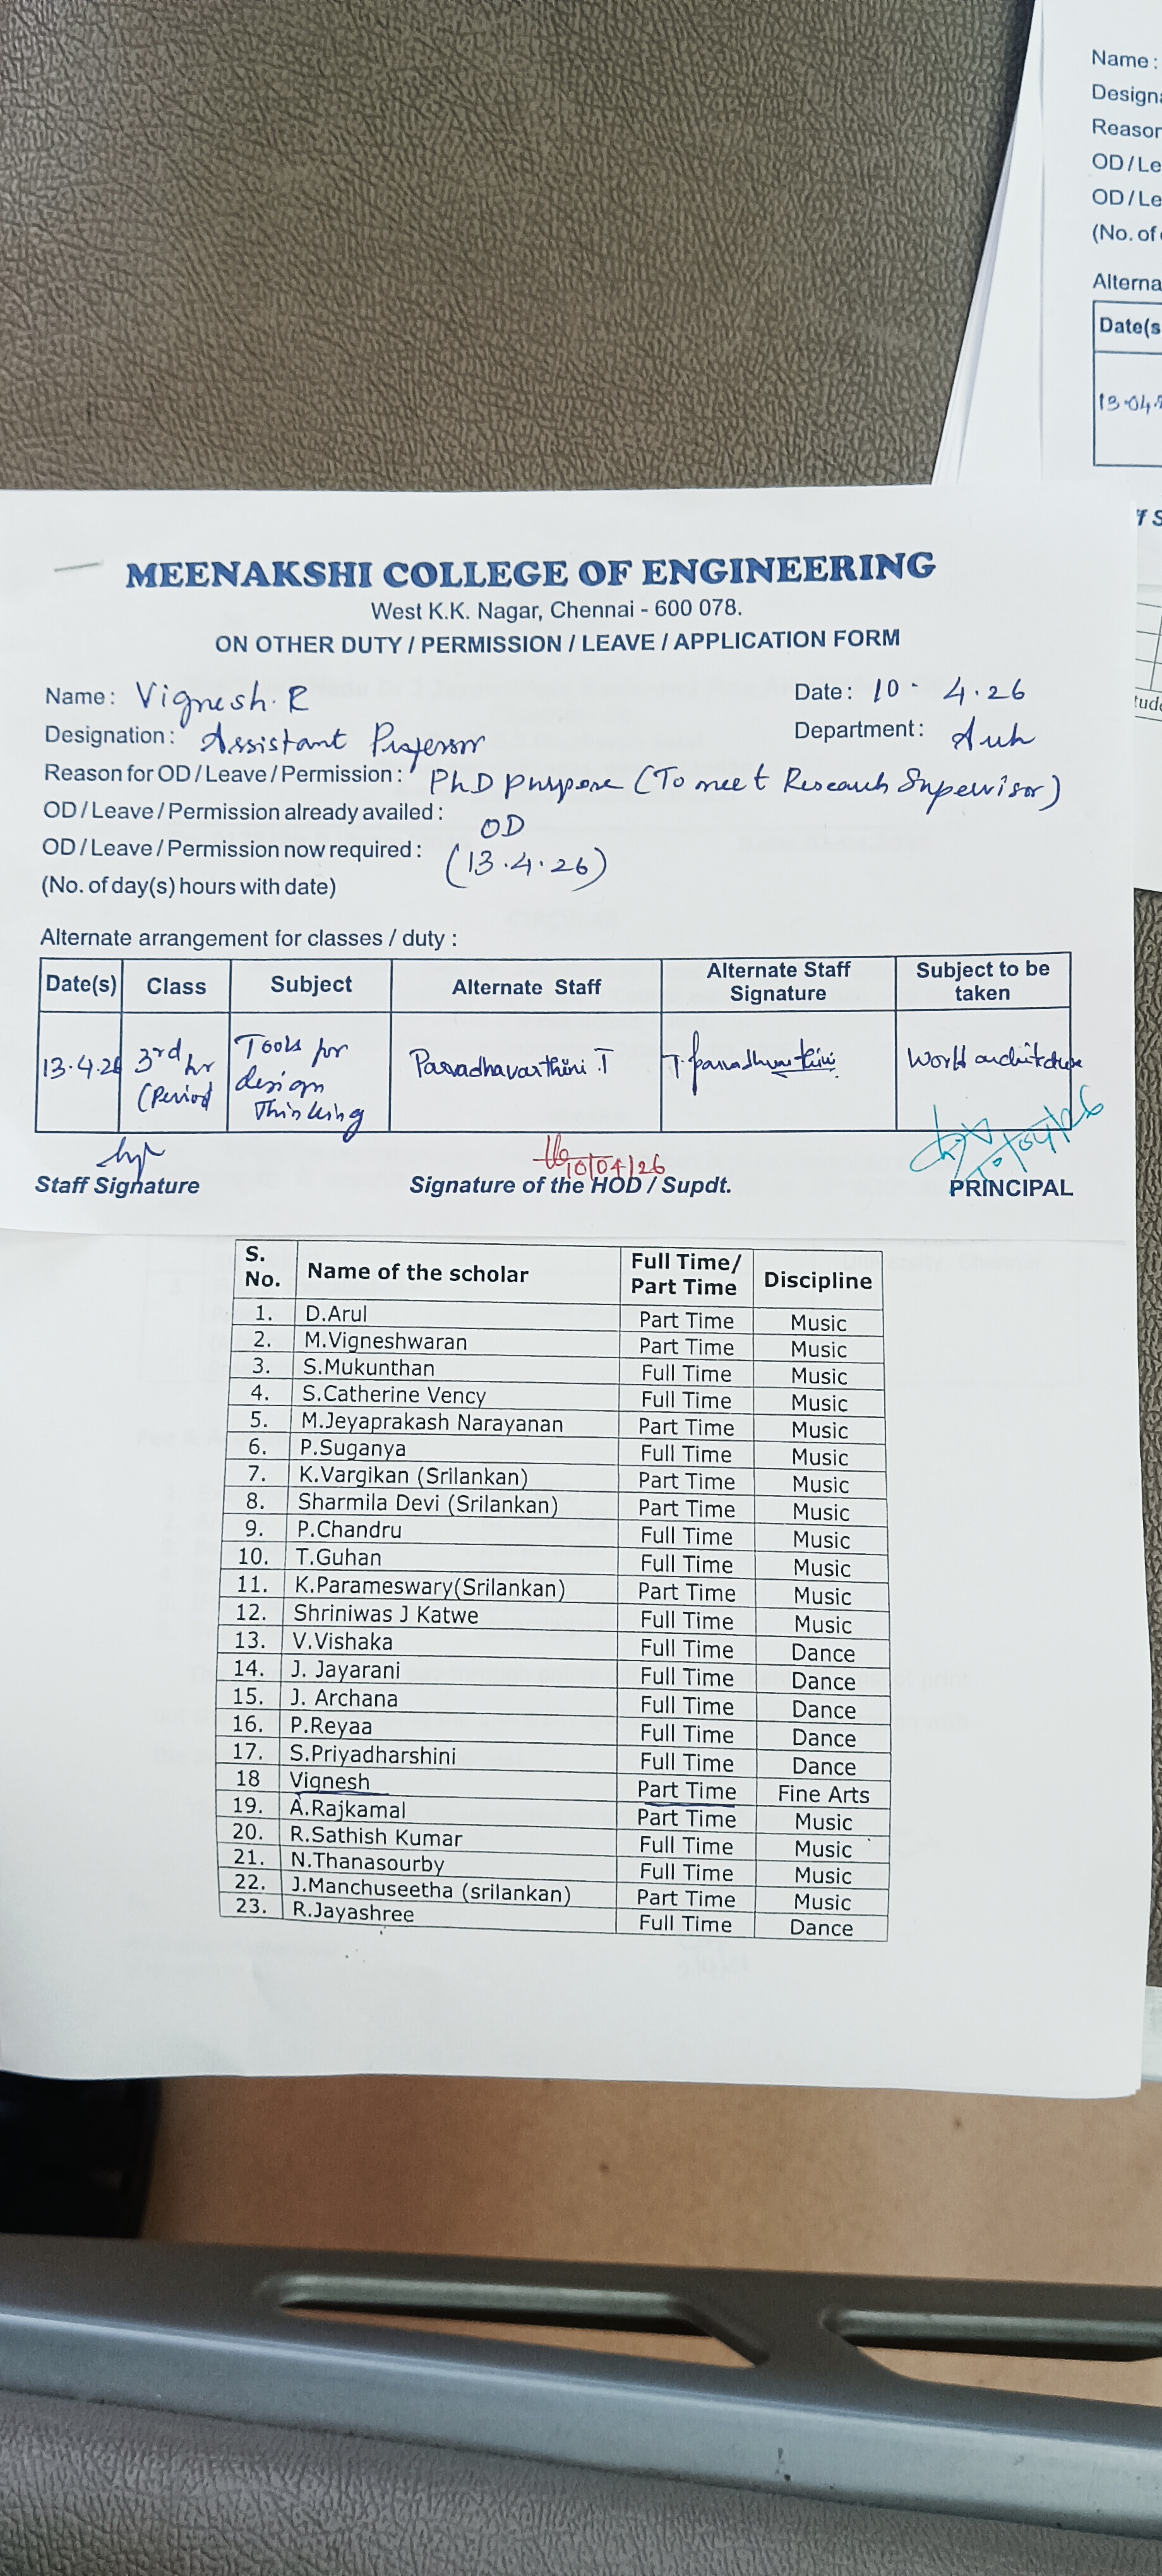 Name :
Designa
Reason
OD / Le
OD / Le
(No. of
Alterna
Date(s
13.04.
MEENAKSHI COLLEGE OF ENGINEERING
West K.K. Nagar, Chennai - 600 078.
ON OTHER DUTY / PERMISSION / LEAVE / APPLICATION FORM
Name : Vignesh. R Date : 10 - 4.26
Designation : Assistant Professor Department : Arch
Reason for OD / Leave / Permission : PhD purpose (To meet Research Supervisor)
OD / Leave / Permission already availed :
OD
OD / Leave / Permission now required : (13.4.26)
(No. of day(s) hours with date)
Alternate arrangement for classes / duty :
Date(s) Class Subject Alternate Staff Alternate Staff Signature Subject to be taken
13.4.26 3rd hr (Period Tools for design Thinking Paavadhavarthini .T World architecture
10/04/26
Staff Signature Signature of the HOD / Supdt. PRINCIPAL
S. No. Name of the scholar Full Time/ Part Time Discipline
1. D.Arul Part Time Music
2. M.Vigneshwaran Part Time Music
3. S.Mukunthan Full Time Music
4. S.Catherine Vency Full Time Music
5. M.Jeyaprakash Narayanan Part Time Music
6. P.Suganya Full Time Music
7. K.Vargikan (Srilankan) Part Time Music
8. Sharmila Devi (Srilankan) Part Time Music
9. P.Chandru Full Time Music
10. T.Guhan Full Time Music
11. K.Parameswary(Srilankan) Part Time Music
12. Shriniwas J Katwe Full Time Music
13. V.Vishaka Full Time Dance
14. J. Jayarani Full Time Dance
15. J. Archana Full Time Dance
16. P.Reyaa Full Time Dance
17. S.Priyadharshini Full Time Dance
18 Vignesh Part Time Fine Arts
19. A.Rajkamal Part Time Music
20. R.Sathish Kumar Full Time Music
21. N.Thanasourby Full Time Music
22. J.Manchuseetha (srilankan) Part Time Music
23. R.Jayashree Full Time Dance